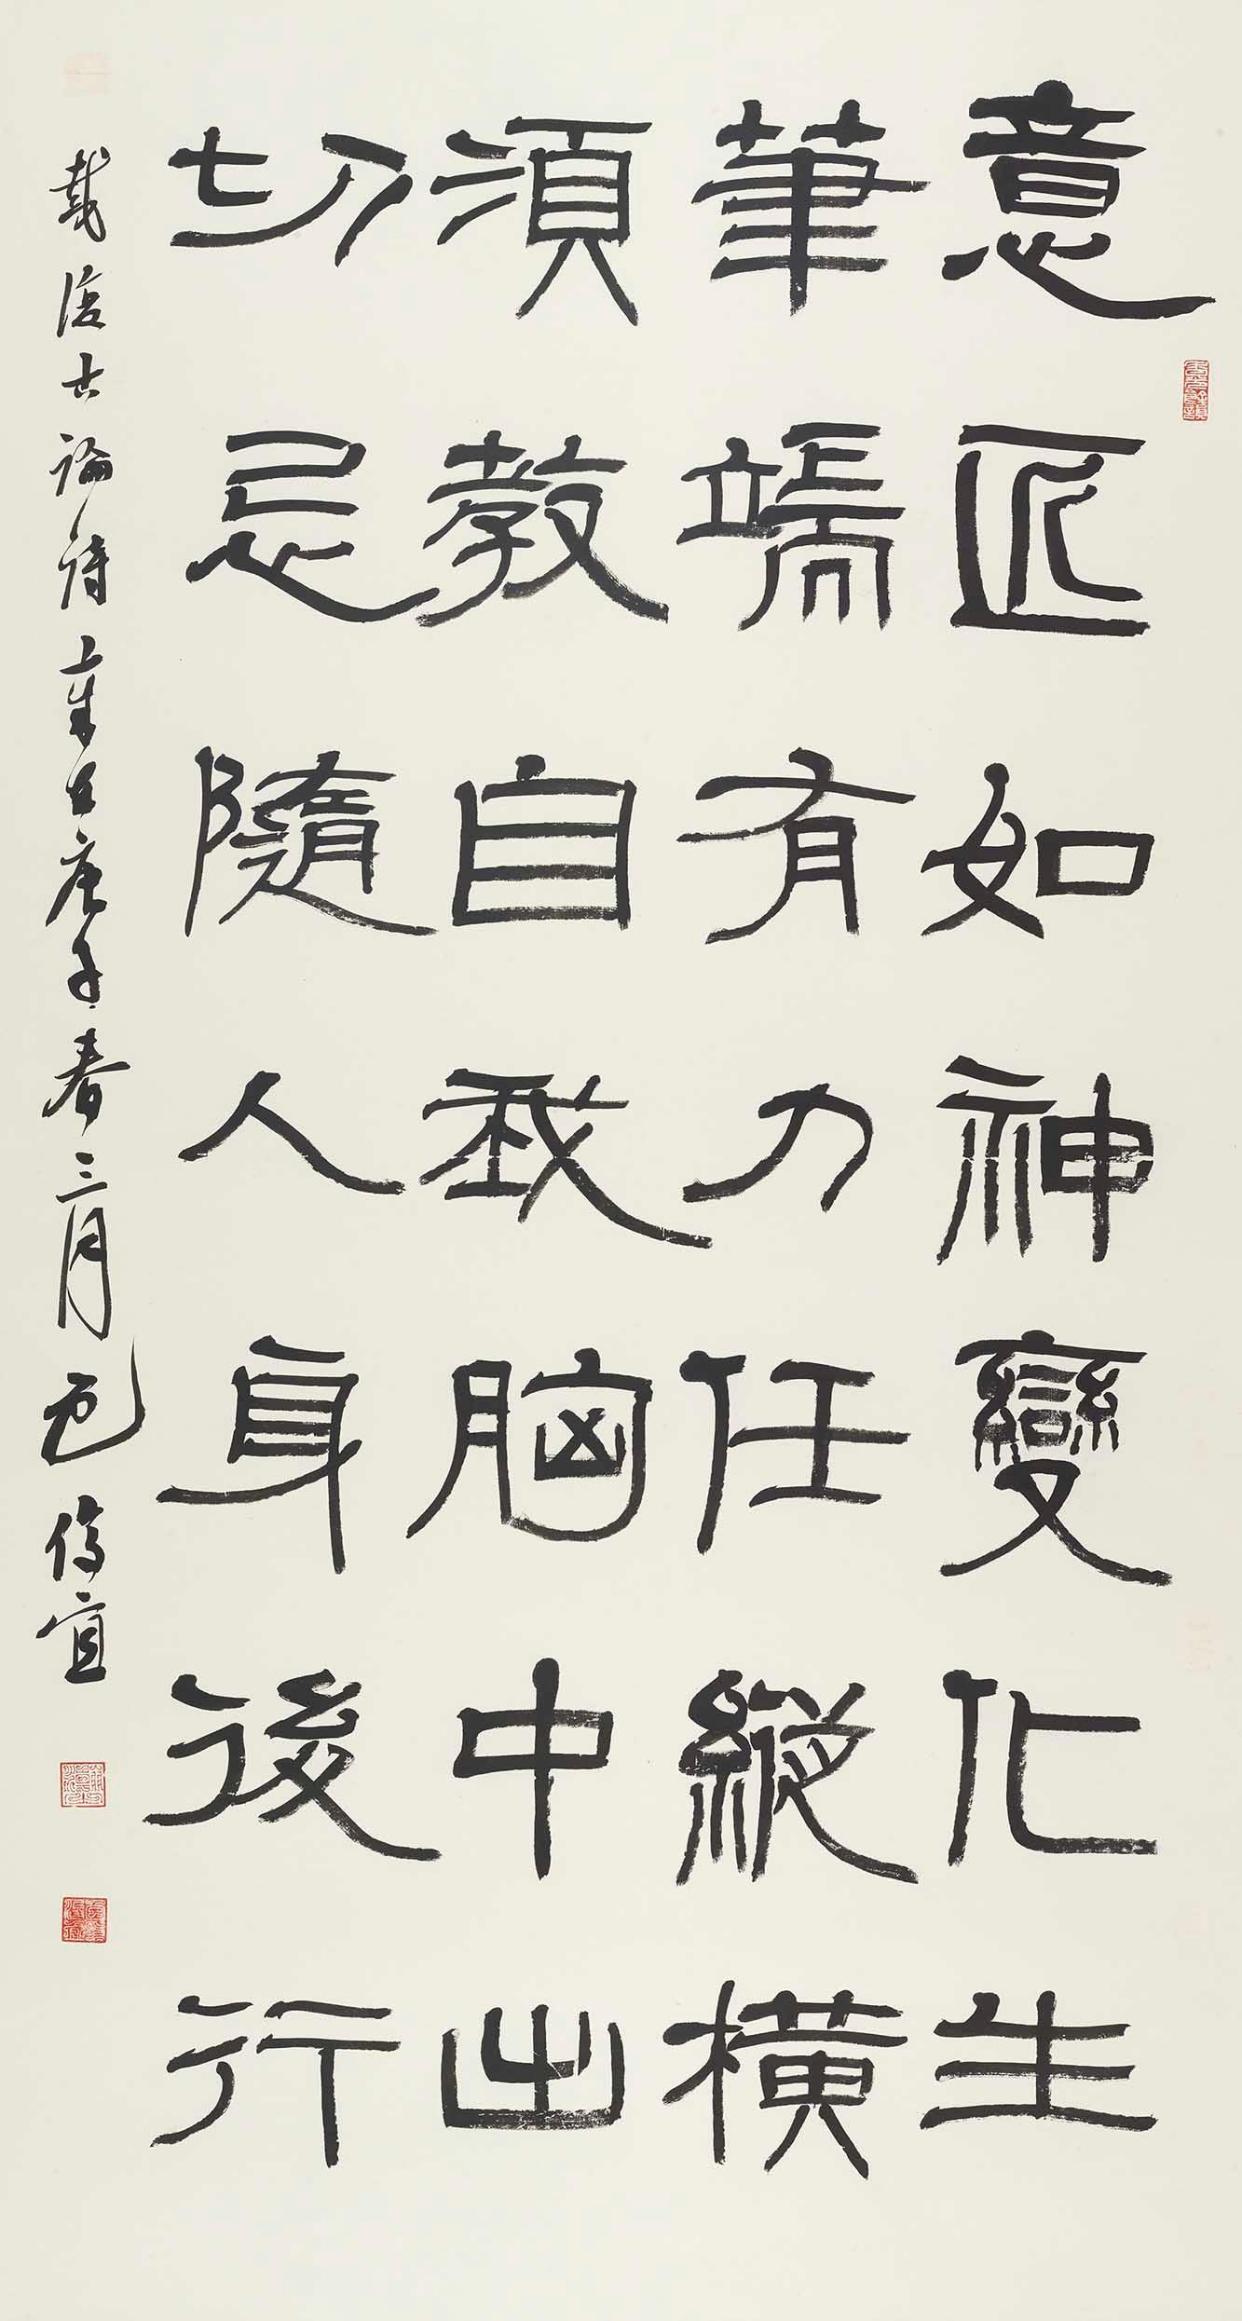 意匠如神變化生
筆端有力任縱橫
須教自我胸中出
切忌隨人身後行
戴復古論詩一章 庚子春三月 張停宜